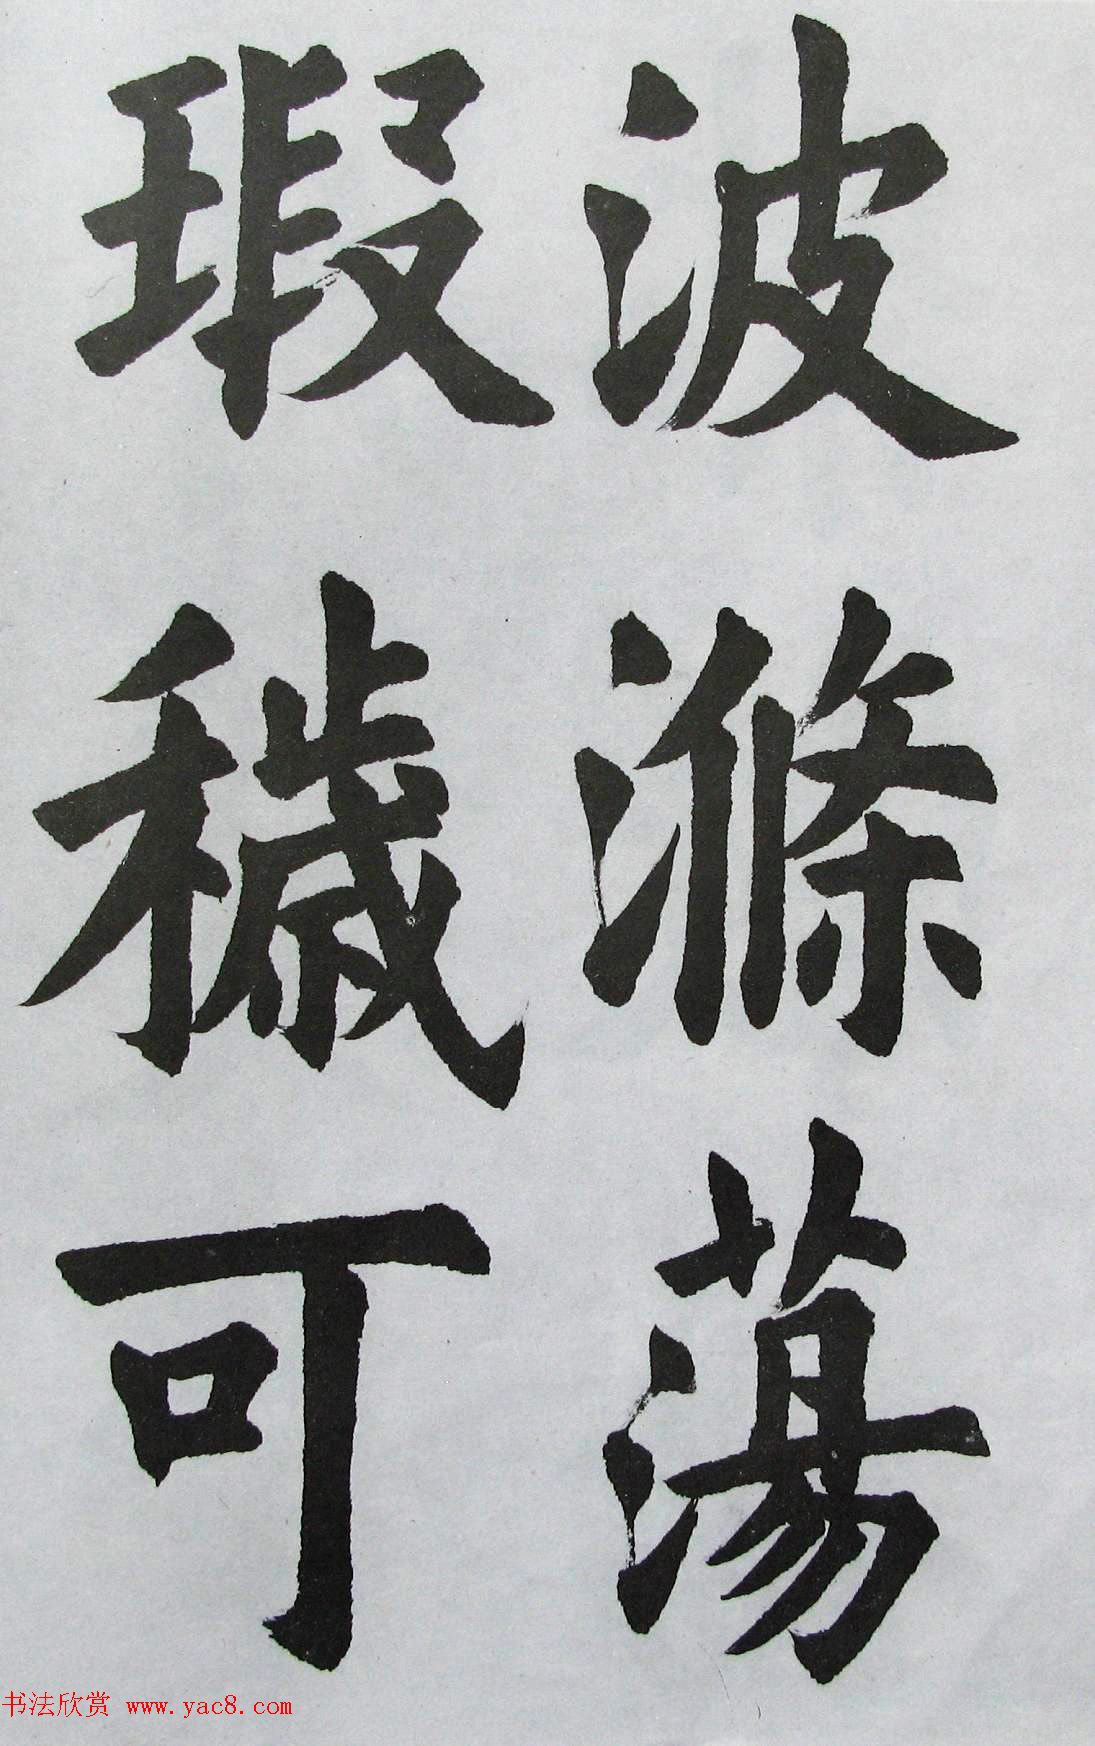 波滌蕩
瑕穢可
书法欣赏 www.yac8.com